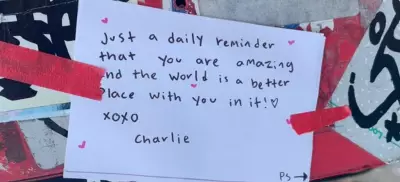 Just a daily reminder
that you are amazing
and the world is a better
place with you in it!♡
xoxo
Charlie
PS→